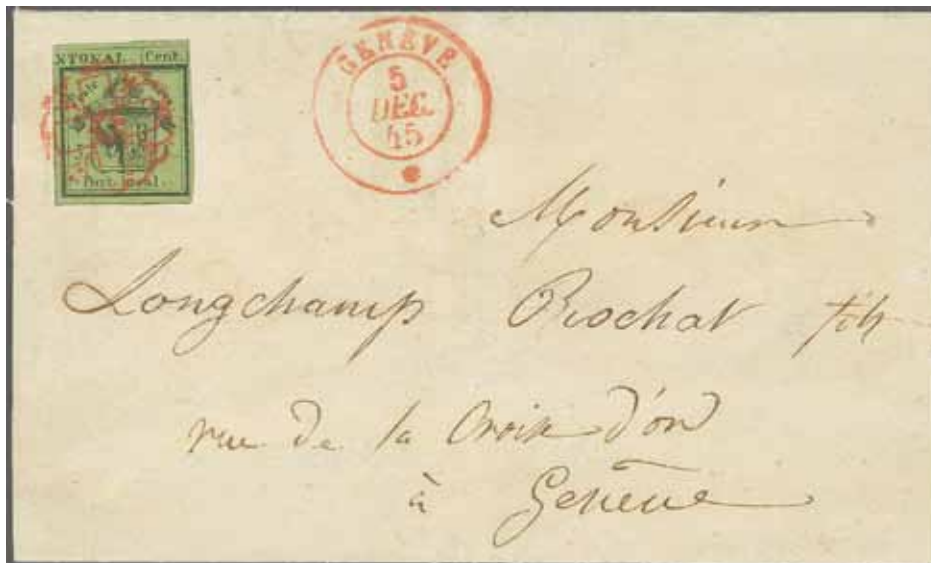 NTONAL Cent.
Port local.
GENÈVE
5
DEC.
45
Monsieur
Longchamp Rochat fils
rue de la Croix d'or
à Genève